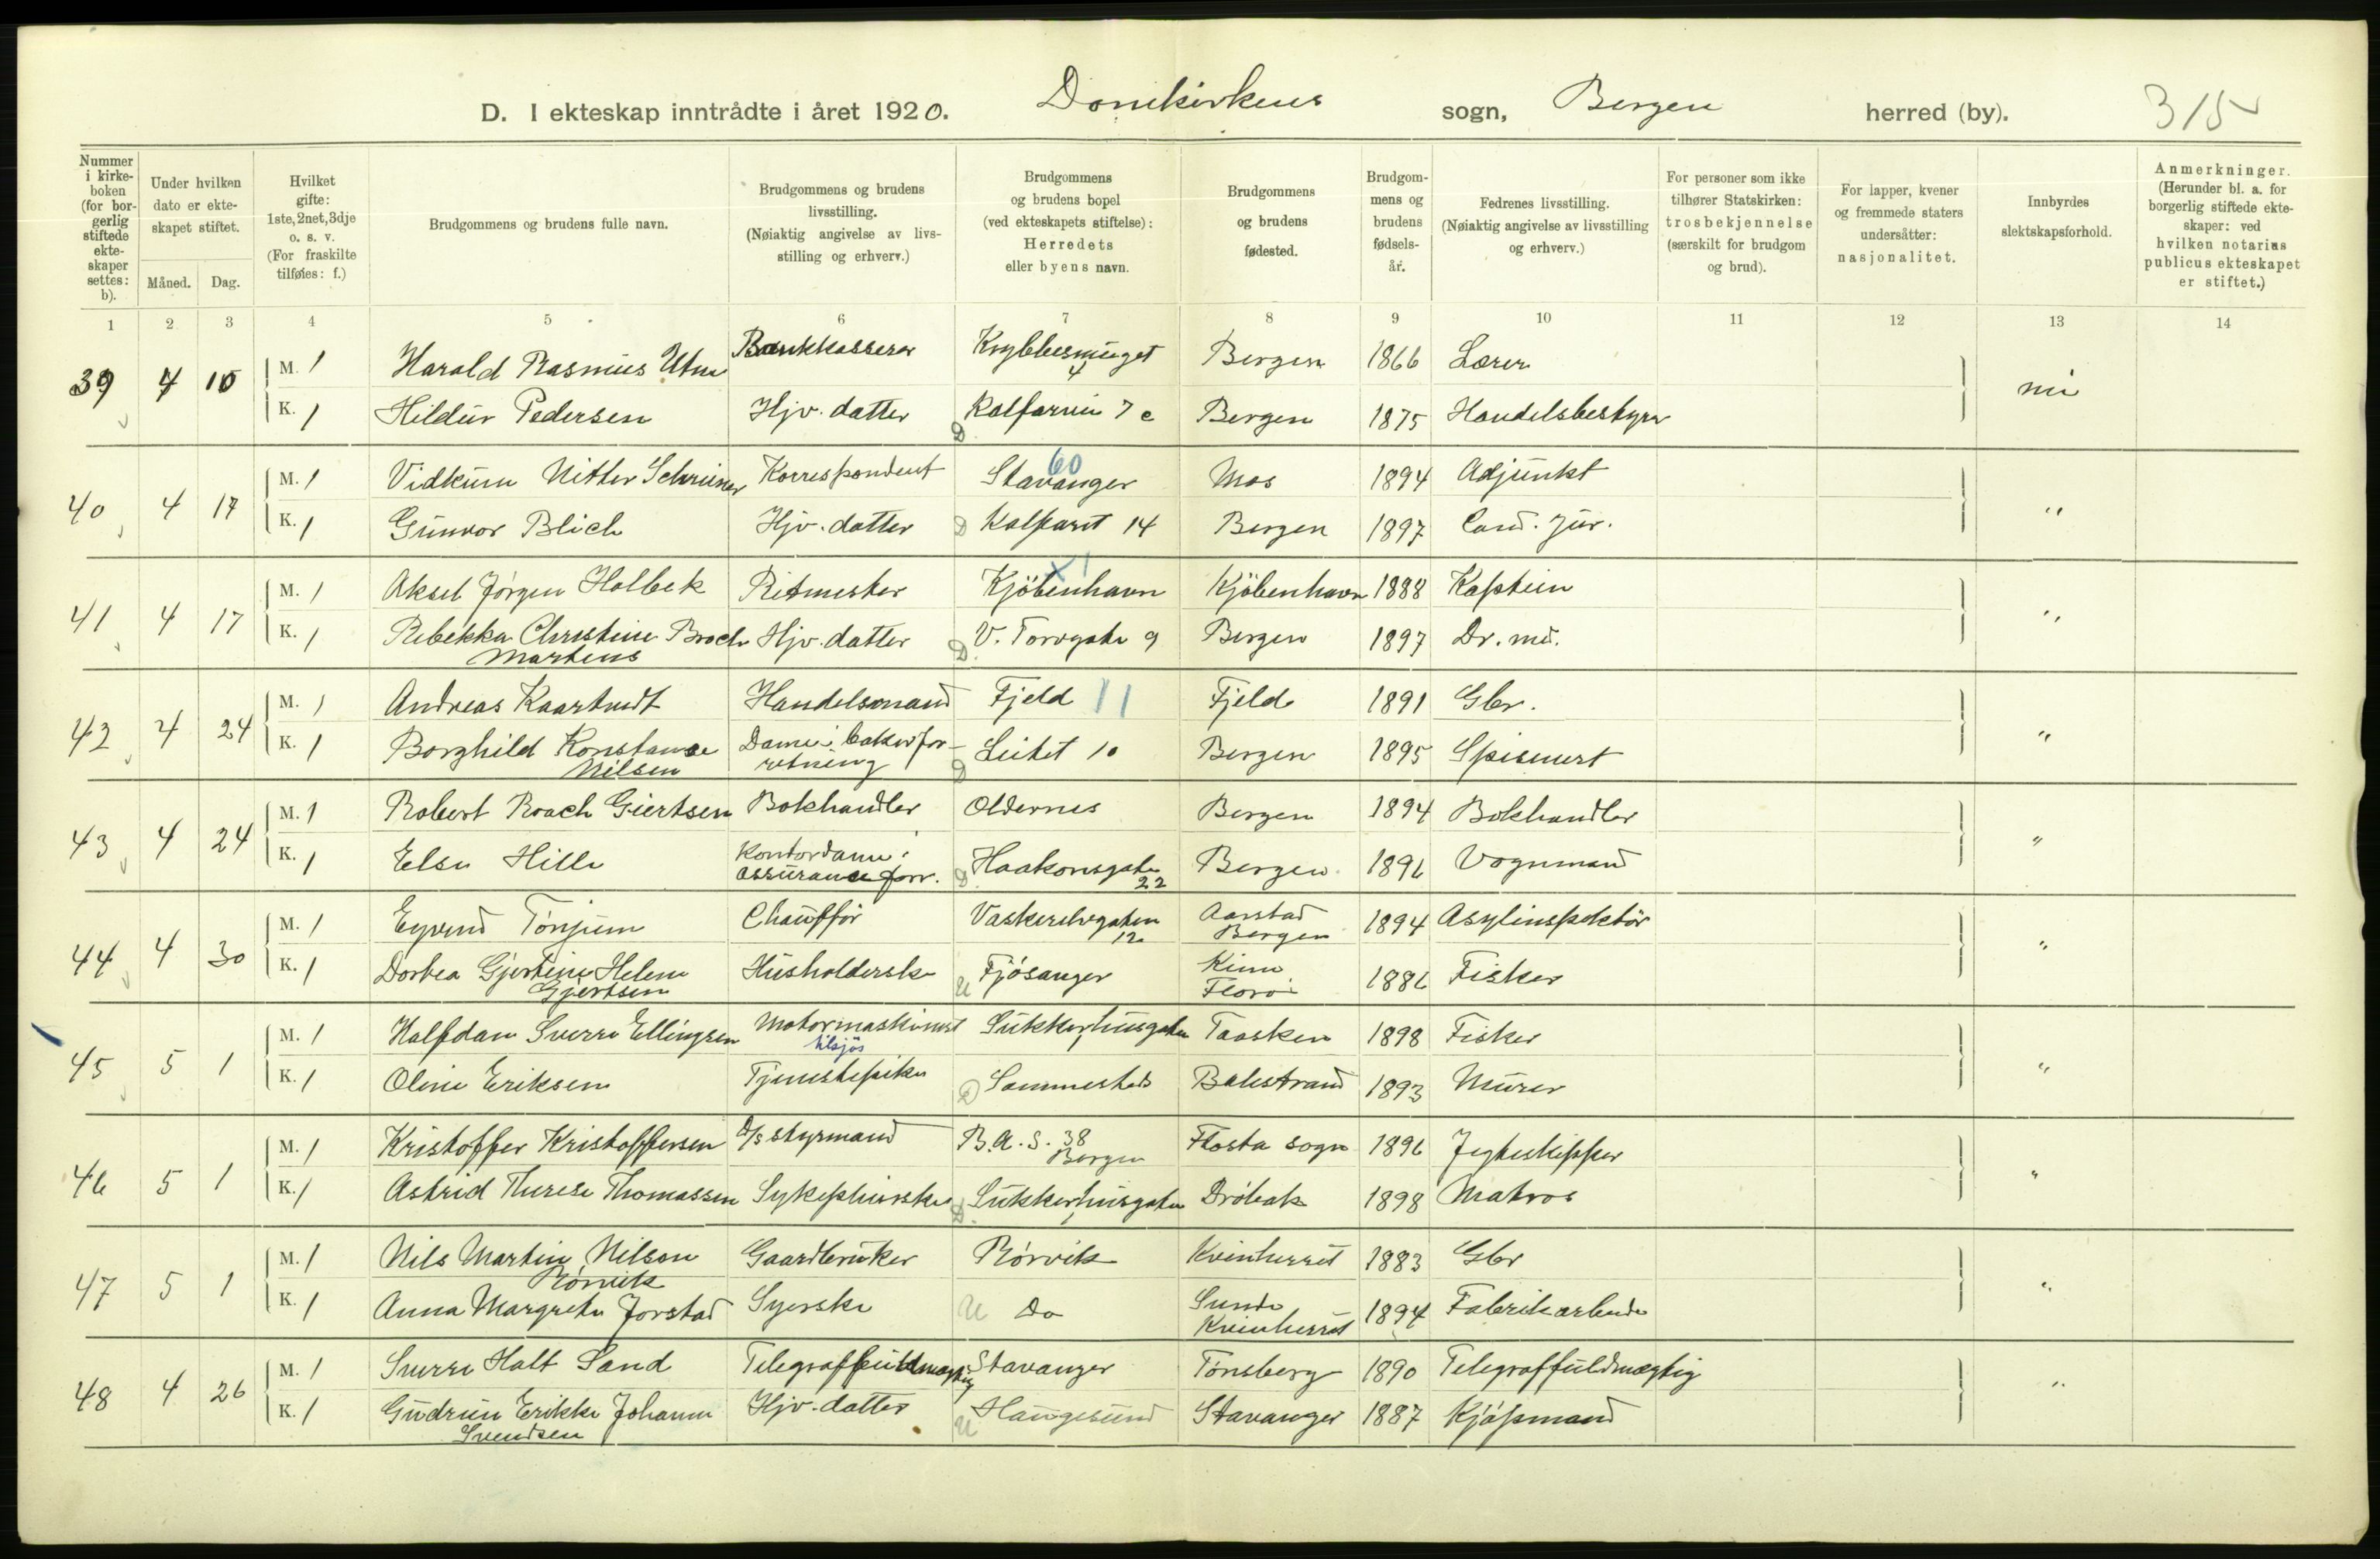 D. I ekteskap inntrådte i året 1920. Domkirkens sogn, Bergen herred (by). 315
Nummer i kirkeboken (for borgerlig stiftede ekteskaper settes: b).
Under hvilken dato er ekteskapet stiftet.
Måned. Dag.
Hvilket gifte: 1ste, 2net, 3dje o. s. v. (For fraskilte tilføies: f.)
Brudgommens og brudens fulle navn.
Brudgommens og brudens livsstilling. (Nøiaktig angivelse av livsstilling og erhverv.)
Brudgommens og brudens bopel (ved ekteskapets stiftelse): Herredets eller byens navn.
Brudgommens og brudens fødested.
Brudgommens og brudens fødselsår.
Fedrenes livsstilling. (Nøiaktig angivelse av livsstilling og erhverv.)
For personer som ikke tilhører Statskirken: trosbekjennelse (særskilt for brudgom og brud).
For lapper, kvener og fremmede staters undersåtter: nasjonalitet.
Innbyrdes slektskapsforhold.
Anmerkninger. (Herunder bl. a. for borgerlig stiftede ekteskaper: ved hvilken notarius publicus ekteskapet er stiftet.)
1 2 3 4 5 6 7 8 9 10 11 12 13 14
39 4 10 M. 1 Harald Rasmus Utne Bankkasserer Kryblesmuget 4 Bergen 1866 Lærer
K. 1 Hildur Pedersen Hjv. datter D Kalfarvei 7c Bergen 1875 Handelsbestyrer nei
40 4 17 M. 1 Vidkunn Nitter Schreiner Korrespondent Stavanger 60 Mos 1894 Adjunkt
K. 1 Gunvor Blich Hjv. datter D Kalfaret 14 Bergen 1897 Cand. jur. "
41 4 17 M. 1 Aksel Jørgen Holbek Ritmester Kjøbenhavn Kjøbenhavn 1888 Kaptein
K. 1 Rebekka Christine Broch Martens Hjv. datter D V. Torvgate 9 Bergen 1897 Dr. med. "
42 4 24 M. 1 Andreas Kaartvedt Handelsmand Fjeld 11 Fjeld 1891 Gbr.
K. 1 Borghild Konstanse Nilsen Dame i bakerforretning D Leitet 10 Bergen 1895 Spisevert "
43 4 24 M. 1 Robert Roach Giertsen Bokhandler Oldernes Bergen 1894 Bokhandler
K. 1 Else Hille Kontordame i assuranceforr. D Haakonsgaten 22 Bergen 1896 Vognmand "
44 4 30 M. 1 Eyvind Tønjum Chauffør Vaskerelvgaten 12 Aarstad Bergen 1894 Asylinspektør
K. 1 Dortea Gjertine Helene Gjertsen Husholderske U Fjøsanger Kinn Florø 1886 Fisker "
45 5 1 M. 1 Halfdan Sverre Ellingsen Motormaskinist tilsjøs Sukkerhusgaten 1 Taasken 1898 Fisker
K. 1 Oline Eriksen Tjenestepike D Sammesteds Balestrand 1893 Murer "
46 5 1 M. 1 Kristoffer Kristoffersen D/s styrmand B.A.S. 38 Bergen Flosta sogn 1896 Jegteskipper
K. 1 Astrid Therese Thomassen Sykepleierske D Sukkerhusgaten 1 Drøbak 1898 Matros "
47 5 1 M. 1 Nils Martin Nilsen Rørvik Gaardbruker Rørvik Kvinherred 1883 Gbr
K. 1 Anna Margrete Jorstad Syerske U Do Sunde Kvinherred 1894 Fabrikarbeider "
48 4 26 M. 1 Sverre Halt Sand Telegraffuldmægtig Stavanger Tønsberg 1890 Telegraffuldmægtig
K. 1 Gudrun Erikke Johanne Svendsen Hjv. datter U Haugesund Stavanger 1887 Kjøpmand "